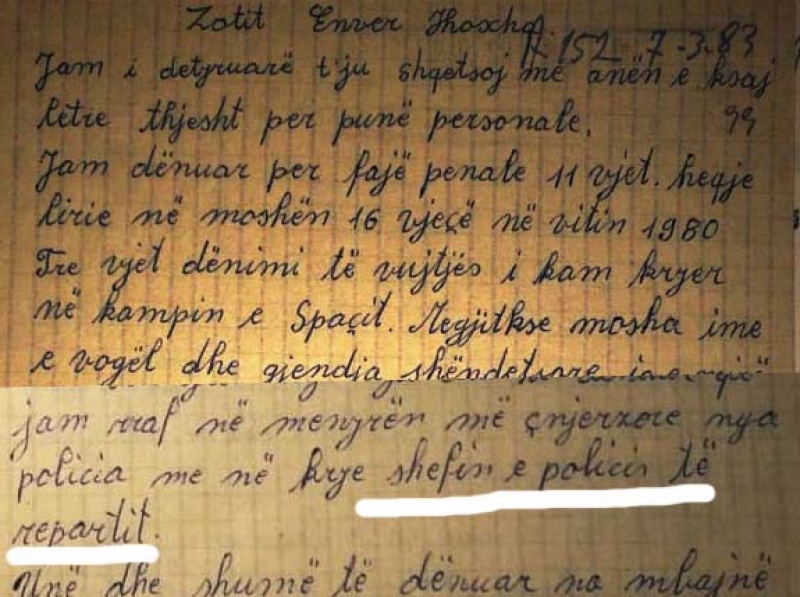 Zotit Enver Hoxha.
152 7-3-83
Jam i detyruarë t'ju shqetsoj me anën e ksaj
letre thjesht per punë personale. 99
Jam dënuar per fajë penale 11 vjet. heqje
lirie në moshën 16 vjeçë në vitin 1980
Tre vjet dënimi të vujtjës i kam kryer
në kampin e Spaçit. Megjitkse mosha ime
e vogël dhe gjendja shëndetsore
jam rraf në menyrën më çnjerzore nga
policia me në krye shefin e policis të
repartit.
Unë dhe shumë të dënuar na mbajnë